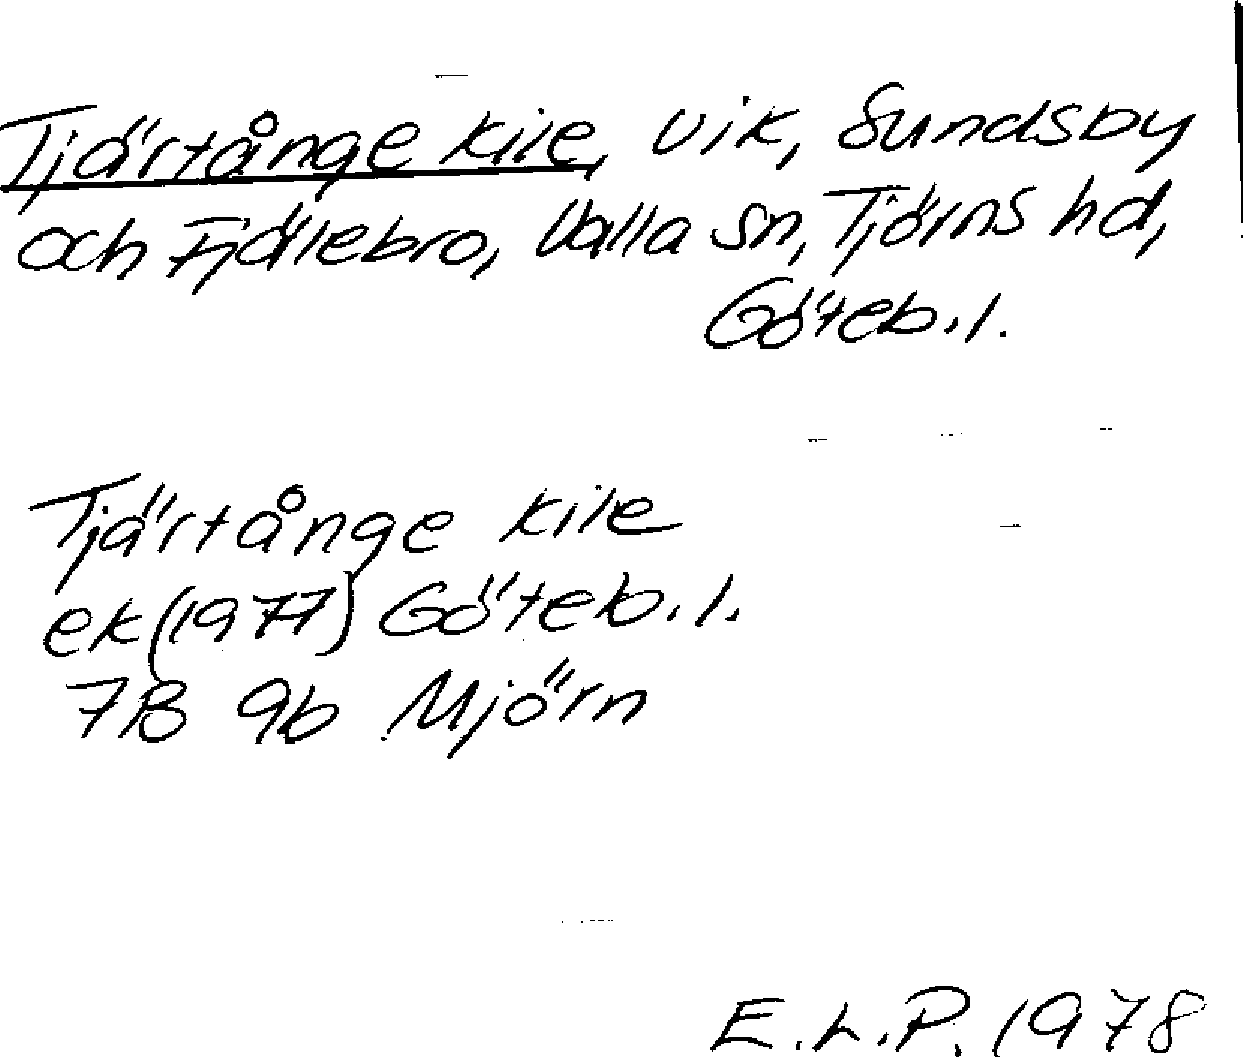 Tjärtånge kile, vik, Sundsby
och Fjälebro, Valla sn, Tjörns hd,
Göteb. l.
Tjärtånge kile
ek (1977) Göteb. l.
7B 9b Mjörn
E.L.P. 1978